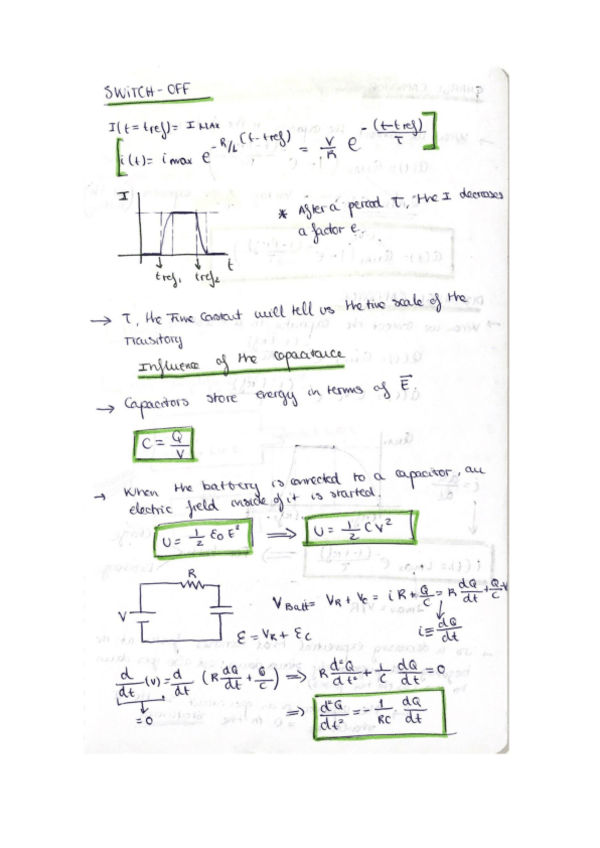 SWITCH-OFF
I(t=tref)= I MAX
i(t)= i max e^-R/L (t-tref) = V/R e^-(t-tref)/τ
I
* After a period τ, the I decreases
a factor e.
t
tref1 tref2
→ τ, the Time Constant will tell us the time scale of the
Transitory
Influence of the capacitance
→ Capacitors store energy in terms of E⃗.
C = Q/V
→ When the battery is connected to a capacitor, an
electric field inside of it is started.
U = 1/2 ε0 E² ⇒ U = 1/2 CV²
R
V
V Batt = VR + Vc = iR + Q/C = R dQ/dt + Q/C
i ≡ dQ/dt
ε = VR + εc
d/dt (V) = d/dt (R dQ/dt + Q/C) ⇒ R d²Q/dt² + 1/C dQ/dt = 0
= 0
⇒ d²Q/dt² = - 1/RC · dQ/dt